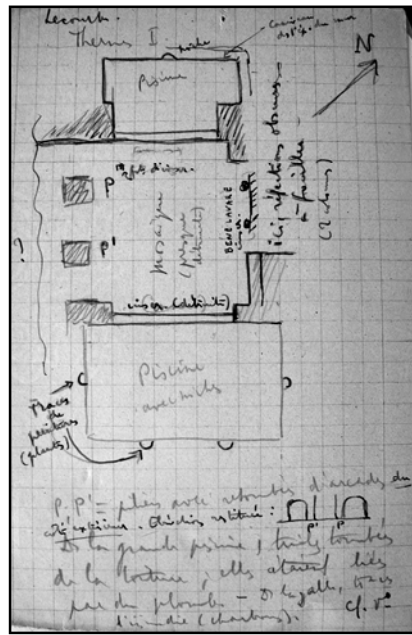 Lecourt.
Thermes I
niche
Piscine
N
P
P'
?
mosaïque
(presque
détruite)
BENE LAVARE
inscr.
ici, réfections obscures
à fouiller
inscr. (détruite)
Piscine
avec niches
Traces
de
(plantes)
P. P' = piliers avec retombées d'arcades du
côté extérieur. Élévation restituée :
P' P
Ds la grande piscine, tuiles tombées
de la toiture ; elles étaient liées
par du plomb — Ds la galle, traces
d'incendie (charbons). cf. v°